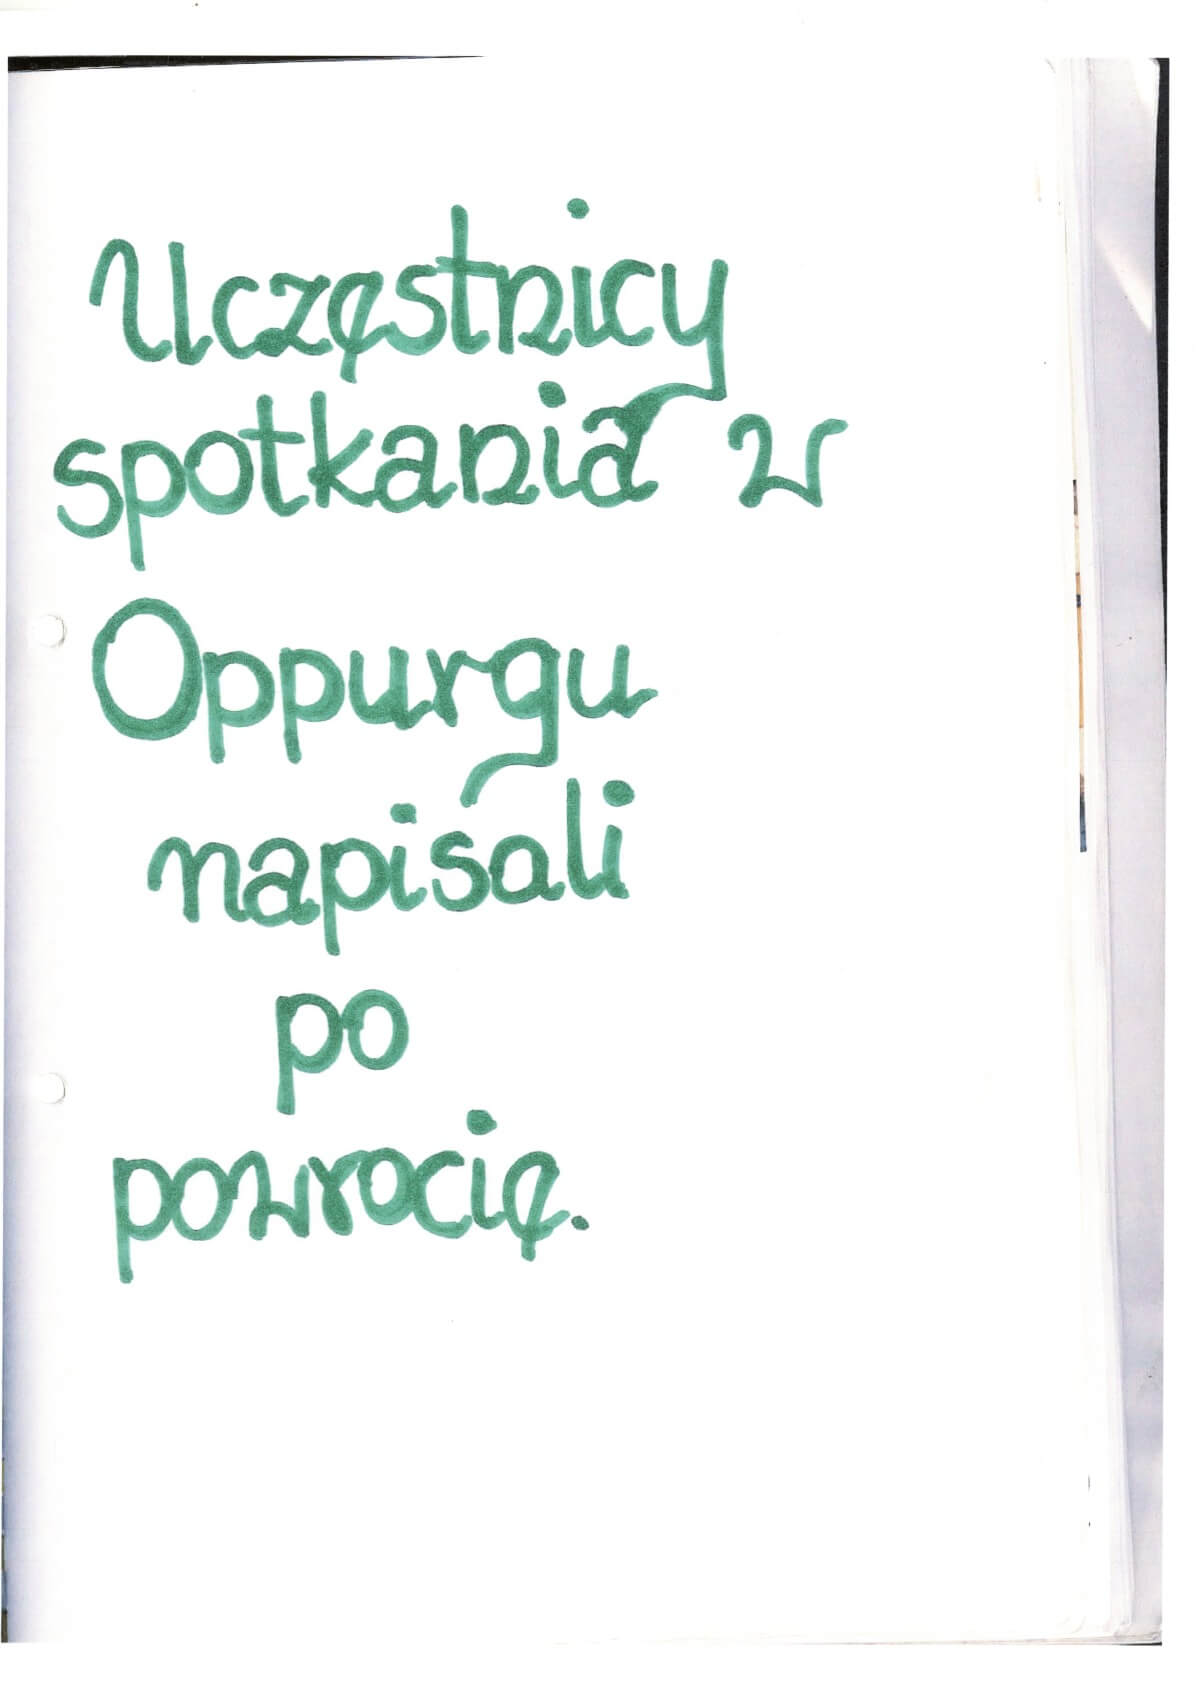 Uczęstnicy
spotkania w
Oppurgu
napisali
po
powrocię.